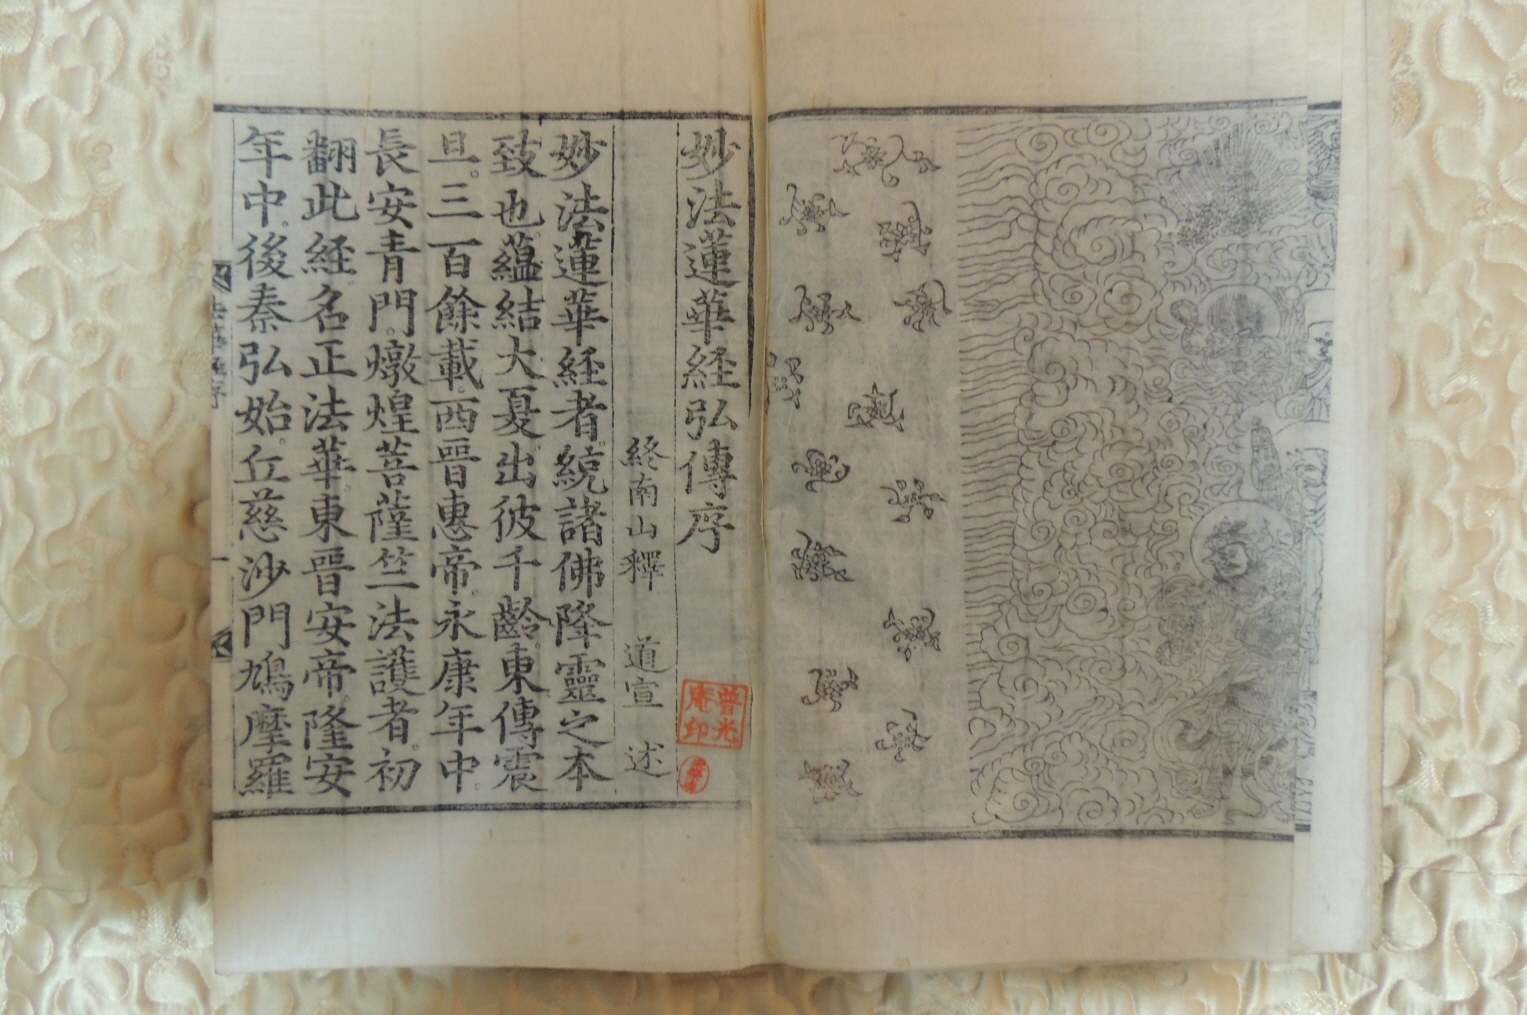 妙法蓮華経弘傳序
終南山釋 道宣 述
妙法蓮華経者。統諸佛降靈之本
致也蘊結大夏出彼千齡。東傳震
旦。三百餘載西晉惠帝。永康年中。
長安青門。燉煌菩薩竺法護者。初
翻此経。名正法華。東晉安帝。隆安
年中。後秦弘始。丘慈沙門鳩摩羅
普光
庵印
一